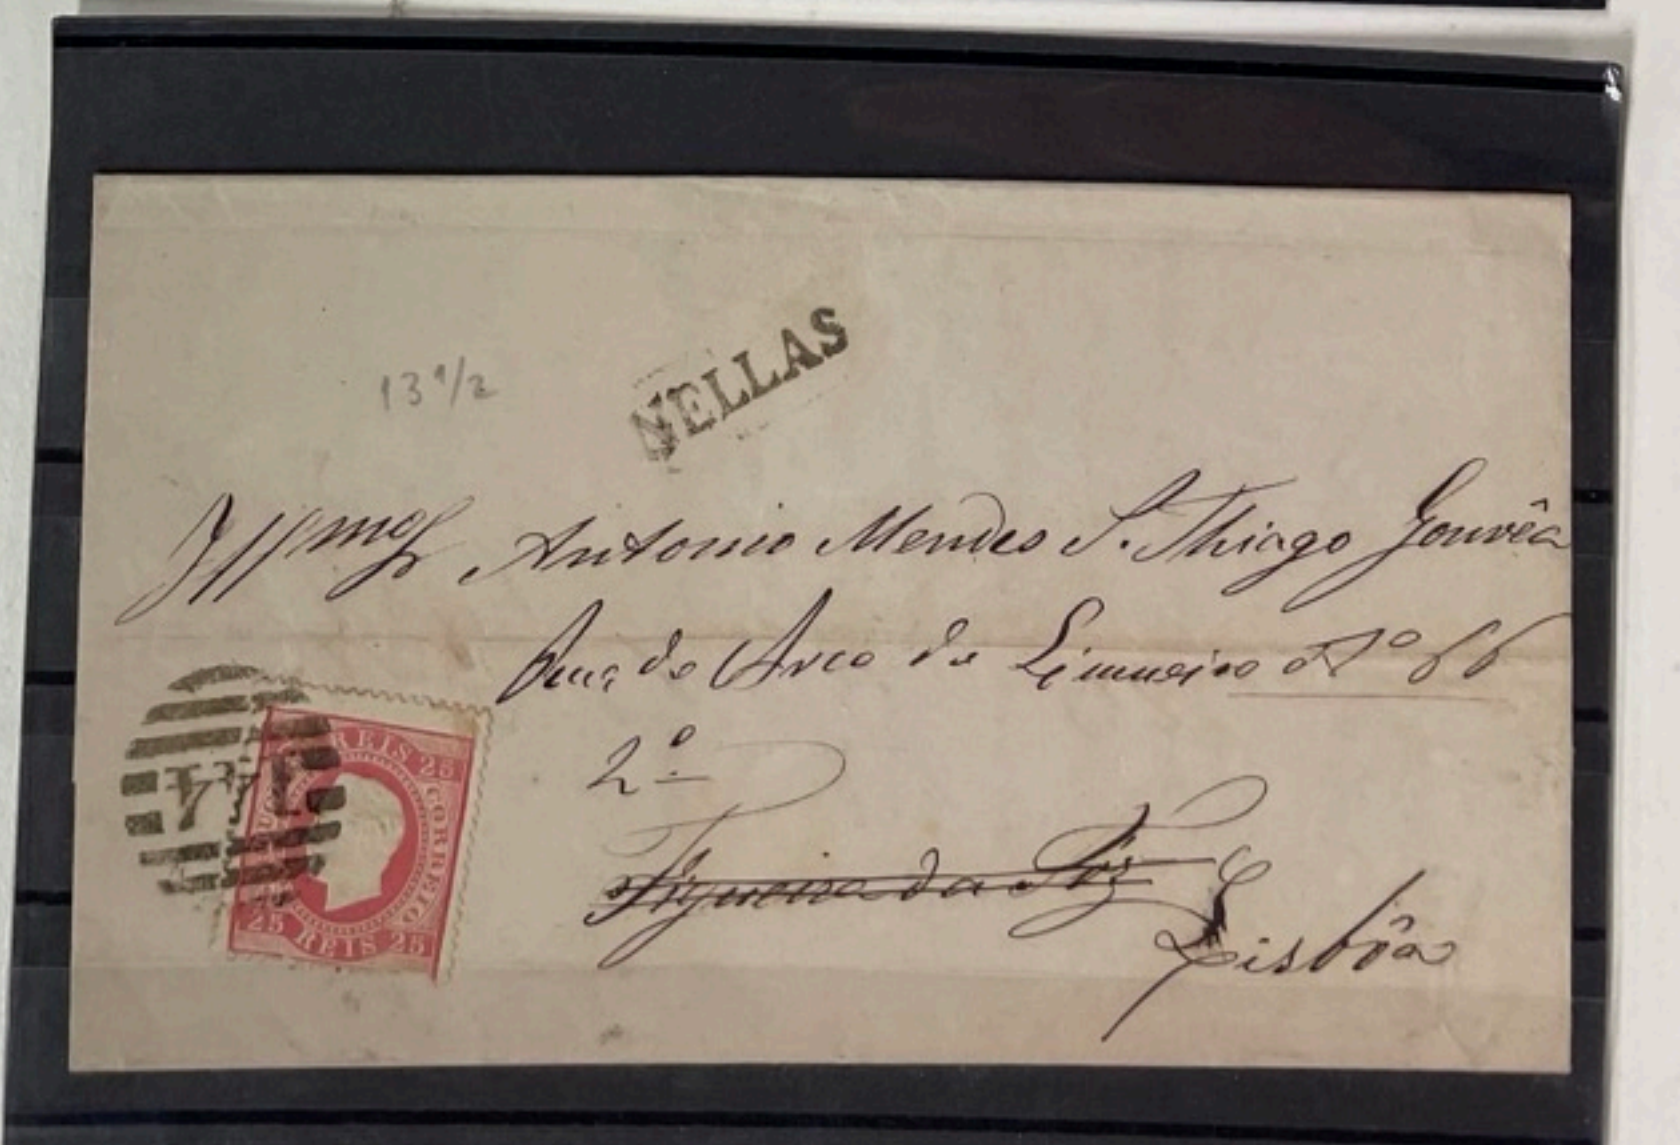 NELLAS
13 1/2
Illmo Antonio Mendes S. Thiago Gouvêa
Rua do Arco do Limueiro Nº 66
2º
Figueira da Foz
Lisbôa
REIS 25
CORREIO
25 REIS 25